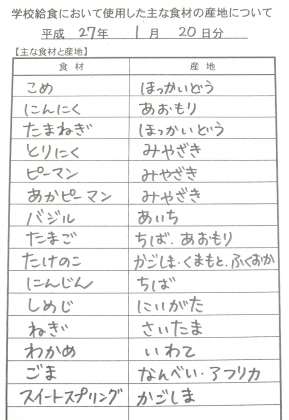 学校給食において使用した主な食材の産地について
平成 27年 1月 20日分
【主な食材と産地】
食材 産地
こめ ほっかいどう
にんにく あおもり
たまねぎ ほっかいどう
とりにく みやざき
ピーマン みやざき
あかピーマン みやざき
バジル あいち
たまご ちば．あおもり
たけのこ かごしま・くまもと．ふくおか
にんじん ちば
しめじ にいがた
ねぎ さいたま
わかめ いわて
ごま なんべい・アフリカ
スイートスプリング かごしま